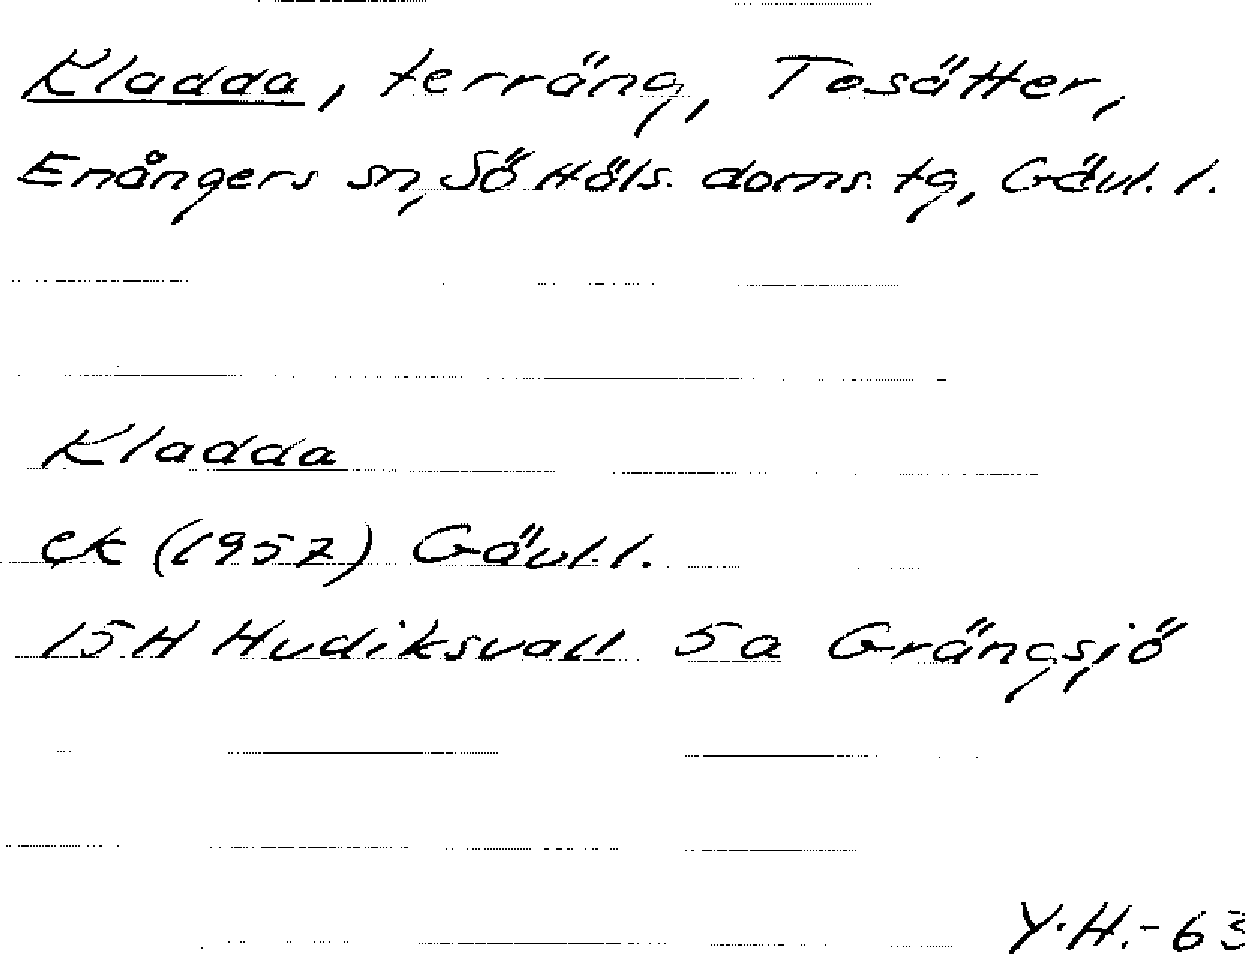 Kladda, terräng, Tosätter,
Enångers sn, Sö Häls. doms. tg, Gävl. l.
Kladda
ek (1957) Gävl. l.
15H Hudiksvall 5a Grängsjö
Y.H.-63